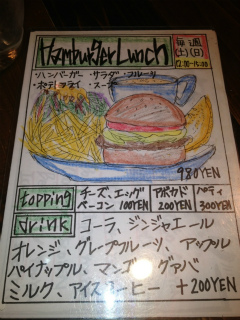 Hamburger Lunch
毎週
(土)(日)
12:00-15:00
・ハンバーガー ・サラダ ・フルーツ
・ポテトフライ ・スープ
980YEN
topping
チーズ、エッグ
ベーコン 100YEN
アボカド
200YEN
パティ
300YEN
drink
コーラ、ジンジャエール
オレンジ、グレープフルーツ、アップル
パイナップル、マンゴー、グァバ
ミルク、アイスコーヒー +200YEN